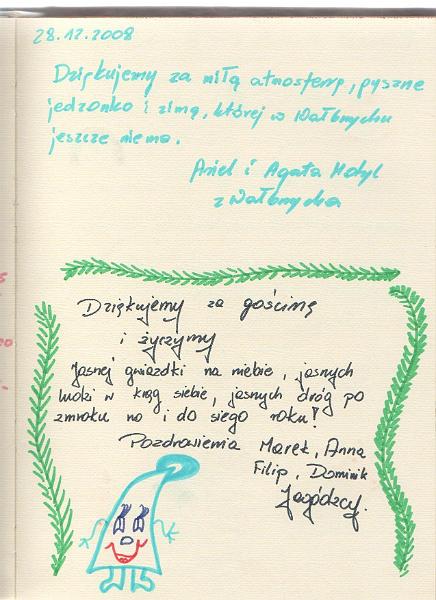 28.12.2008
Dziękujemy za miłą atmosferę, pyszne
jedzonko i zimę, której w Wałbrzychu
jeszcze niema.
Ariel i Agata Motyl
z Wałbrzycha
Dziękujemy za gościnę
i życzymy
Jasnej gwiazdki na niebie, jasnych
ludzi w krąg siebie, jasnych dróg po
zmroku no i do siego roku!
Pozdrowienia Marek, Anna
Filip, Dominik
Jagódzcy.